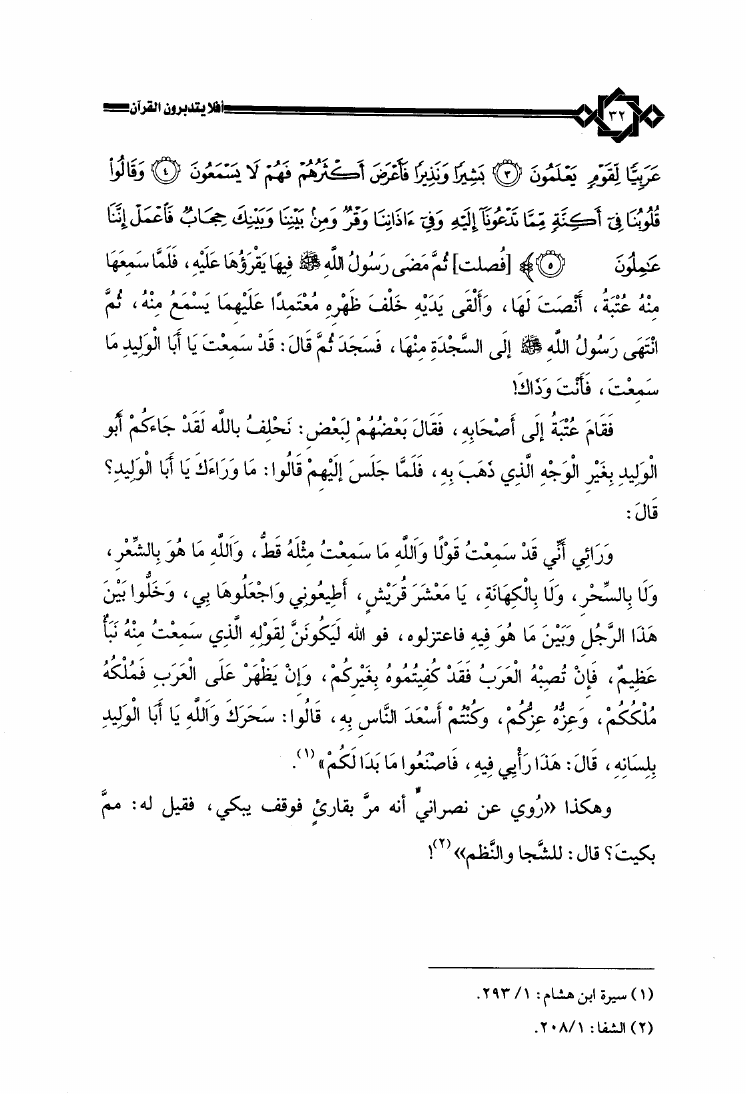 ٣٢
أفلا يتدبرون القرآن
عَرَبِيًّا لِّقَوْمٍ يَعْلَمُونَ ٣ بَشِيرًا وَنَذِيرًا فَأَعْرَضَ أَكْثَرُهُمْ فَهُمْ لَا يَسْمَعُونَ ٤ وَقَالُوا۟
قُلُوبُنَا فِىٓ أَكِنَّةٍ مِّمَّا تَدْعُونَآ إِلَيْهِ وَفِىٓ ءَاذَانِنَا وَقْرٌ وَمِنۢ بَيْنِنَا وَبَيْنِكَ حِجَابٌ فَٱعْمَلْ إِنَّنَا
عَٰمِلُونَ ٥﴾ [فُصلت] ثُمَّ مَضَى رَسُولُ اللهِ ﷺ فِيهَا يَقْرَؤُهَا عَلَيْهِ، فَلَمَّا سَمِعَهَا
مِنْهُ عُتْبَةُ، أَنْصَتَ لَهَا، وَأَلْقَى يَدَيْهِ خَلْفَ ظَهْرِهِ مُعْتَمِدًا عَلَيْهِمَا يَسْمَعُ مِنْهُ، ثُمَّ
انْتَهَى رَسُولُ اللهِ ﷺ إِلَى السَّجْدَةِ مِنْهَا، فَسَجَدَ ثُمَّ قَالَ: قَدْ سَمِعْتَ يَا أَبَا الْوَلِيدِ مَا
سَمِعْتَ، فَأَنْتَ وَذَاكَ!
فَقَامَ عُتْبَةُ إِلَى أَصْحَابِهِ، فَقَالَ بَعْضُهُمْ لِبَعْضٍ: نَحْلِفُ بِاللهِ لَقَدْ جَاءَكُمْ أَبُو
الْوَلِيدِ بِغَيْرِ الْوَجْهِ الَّذِي ذَهَبَ بِهِ، فَلَمَّا جَلَسَ إِلَيْهِمْ قَالُوا: مَا وَرَاءَكَ يَا أَبَا الْوَلِيدِ؟
قَالَ:
وَرَائِي أَنِّي قَدْ سَمِعْتُ قَوْلًا وَاللهِ مَا سَمِعْتُ مِثْلَهُ قَطُّ، وَاللهِ مَا هُوَ بِالشِّعْرِ،
وَلَا بِالسِّحْرِ، وَلَا بِالْكِهَانَةِ، يَا مَعْشَرَ قُرَيْشٍ، أَطِيعُونِي وَاجْعَلُوهَا بِي، وَخَلُّوا بَيْنَ
هَذَا الرَّجُلِ وَبَيْنَ مَا هُوَ فِيهِ فاعتزلوه، فو الله لَيَكُونَنَّ لِقَوْلِهِ الَّذِي سَمِعْتُ مِنْهُ نَبَأٌ
عَظِيمٌ، فَإِنْ تُصِبْهُ الْعَرَبُ فَقَدْ كُفِيتُمُوهُ بِغَيْرِكُمْ، وَإِنْ يَظْهَرْ عَلَى الْعَرَبِ فَمُلْكُهُ
مُلْكُكُمْ، وَعِزُّهُ عِزُّكُمْ، وَكُنْتُمْ أَسْعَدَ النَّاسِ بِهِ، قَالُوا: سَحَرَكَ وَاللهِ يَا أَبَا الْوَلِيدِ
بِلِسَانِهِ، قَالَ: هَذَا رَأْيِي فِيهِ، فَاصْنَعُوا مَا بَدَا لَكُمْ»(١).
وهكذا «رُوي عن نصرانيٍّ أنه مرَّ بقارئٍ فوقف يبكي، فقيل له: ممَّ
بكيتَ؟ قال: للشَّجا والنَّظم»(٢)!
(١) سيرة ابن هشام: ١/ ٢٩٣.
(٢) الشفا: ٢٠٨/١.